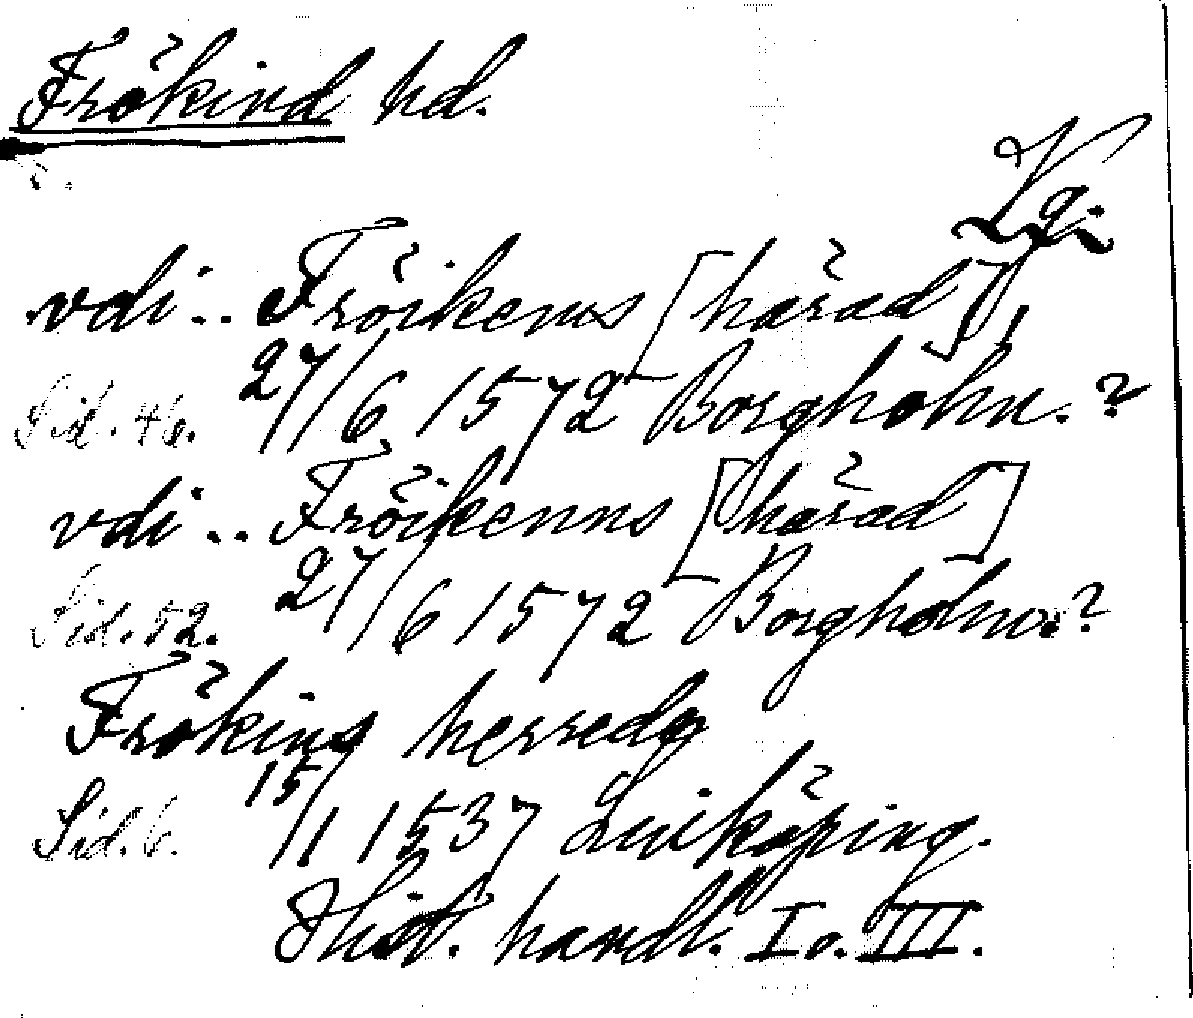 Frökind hd.
Vg.
vdi .. Fröikens [härad],
Sid. 46. 27/6 1572 Borgholm. ?
vdi .. Fröikenns [härad]
Sid. 52. 27/6 1572 Borgholm. ?
Frökins herredz
Sid. 6. 15/1 1537 Linköping.
Hist. handl. I o. III.